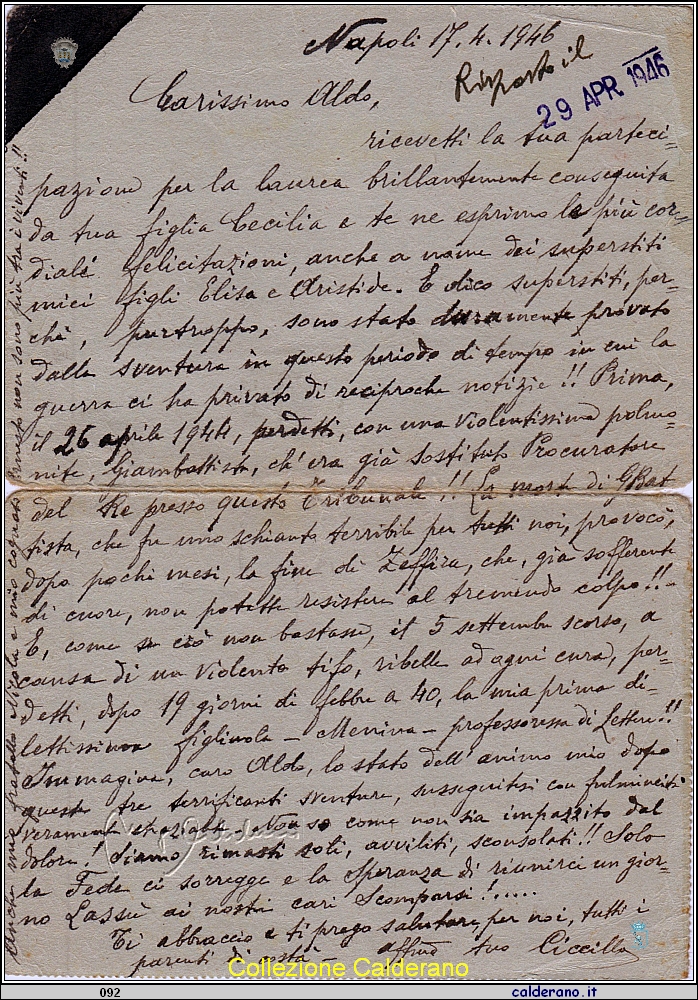 Napoli 17. 4. 1946
Risposto il
29 APR 1946
Carissimo Aldo,
ricevetti la tua parteci-
pazione per la laurea brillantemente conseguita
da tua figlia Cecilia e te ne esprimo le più cor-
diali felicitazioni, anche a nome dei superstiti
miei figli Elisa e Aristide. E dico superstiti, per-
chè, purtroppo, sono stato duramente provato
dalla sventura in questo periodo di tempo in cui la
guerra ci ha privato di reciproche notizie!! Prima,
il 26 aprile 1944, perdetti, con una violentissima polmo-
nite, Giambattista, ch'era già Sostituto Procuratore
del Re presso questo Tribunale!! La morte di GBat
tista, che fu uno schianto terribile per tutti noi, provocò,
dopo pochi mesi, la fine di Zeffira, che, già sofferente
di cuore, non potette resistere al tremendo colpo!!-
E, come se ciò non bastasse, il 5 settembre scorso, a
causa di un violento tifo, ribelle ad ogni cura, per-
detti, dopo 19 giorni di febbre a 40, la mia prima di-
lettissima figliuola - Menina - professoressa di Lettere!!
Immagina, caro Aldo, lo stato dell'animo mio dopo
queste tre terrificanti sventure, susseguitesi con fulmineità
veramente straziante. Non so come non sia impazzito dal
dolore! Siamo rimasti soli, avviliti, sconsolati!! Solo
la Fede ci sorregge e la Speranza di riunirci un gior-
no Lassù ai nostri cari Scomparsi!.....
Ti abbraccio e ti prego salutare, per noi, tutti i
parenti di costà - affmo tuo Ciccillo
Anche mio fratello Nicola e mio cognato Ernesto non sono più tra i viventi!!
Collezione Calderano
092
calderano.it